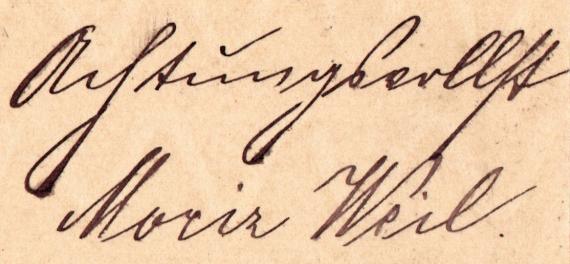 Achtungsvollst
Moriz Weil.